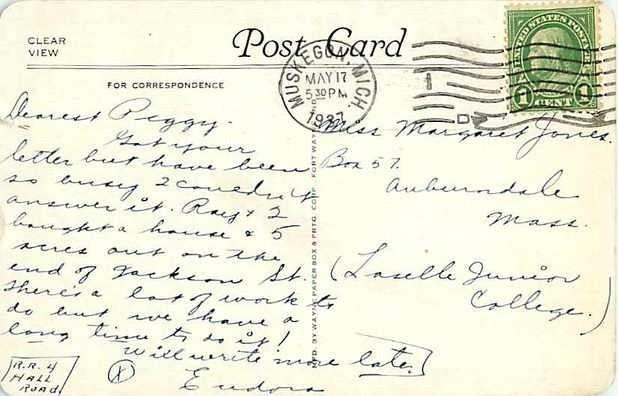 CLEAR
VIEW
Post Card
FOR CORRESPONDENCE
MUSKEGON, MICH.
MAY 17
5 30 PM
UNITED STATES POSTAGE
1 CENT 1
Dearest Peggy.
Got your
letter but have been
so busy I couldn't
answer it. Ray & I
bought a house & 5
acres out on the
end of Jackson St.
There's a lot of work to
do but we have a
long time to do it!
Will write more later.
Eudora
R.R. 4
HALL
ROAD.
X
Miss Margaret Jones.
Box 57.
Auburndale
Mass.
(Laselle Junior
College.)
WAYNE PAPER BOX & PRTG. CORP. FORT WAYNE